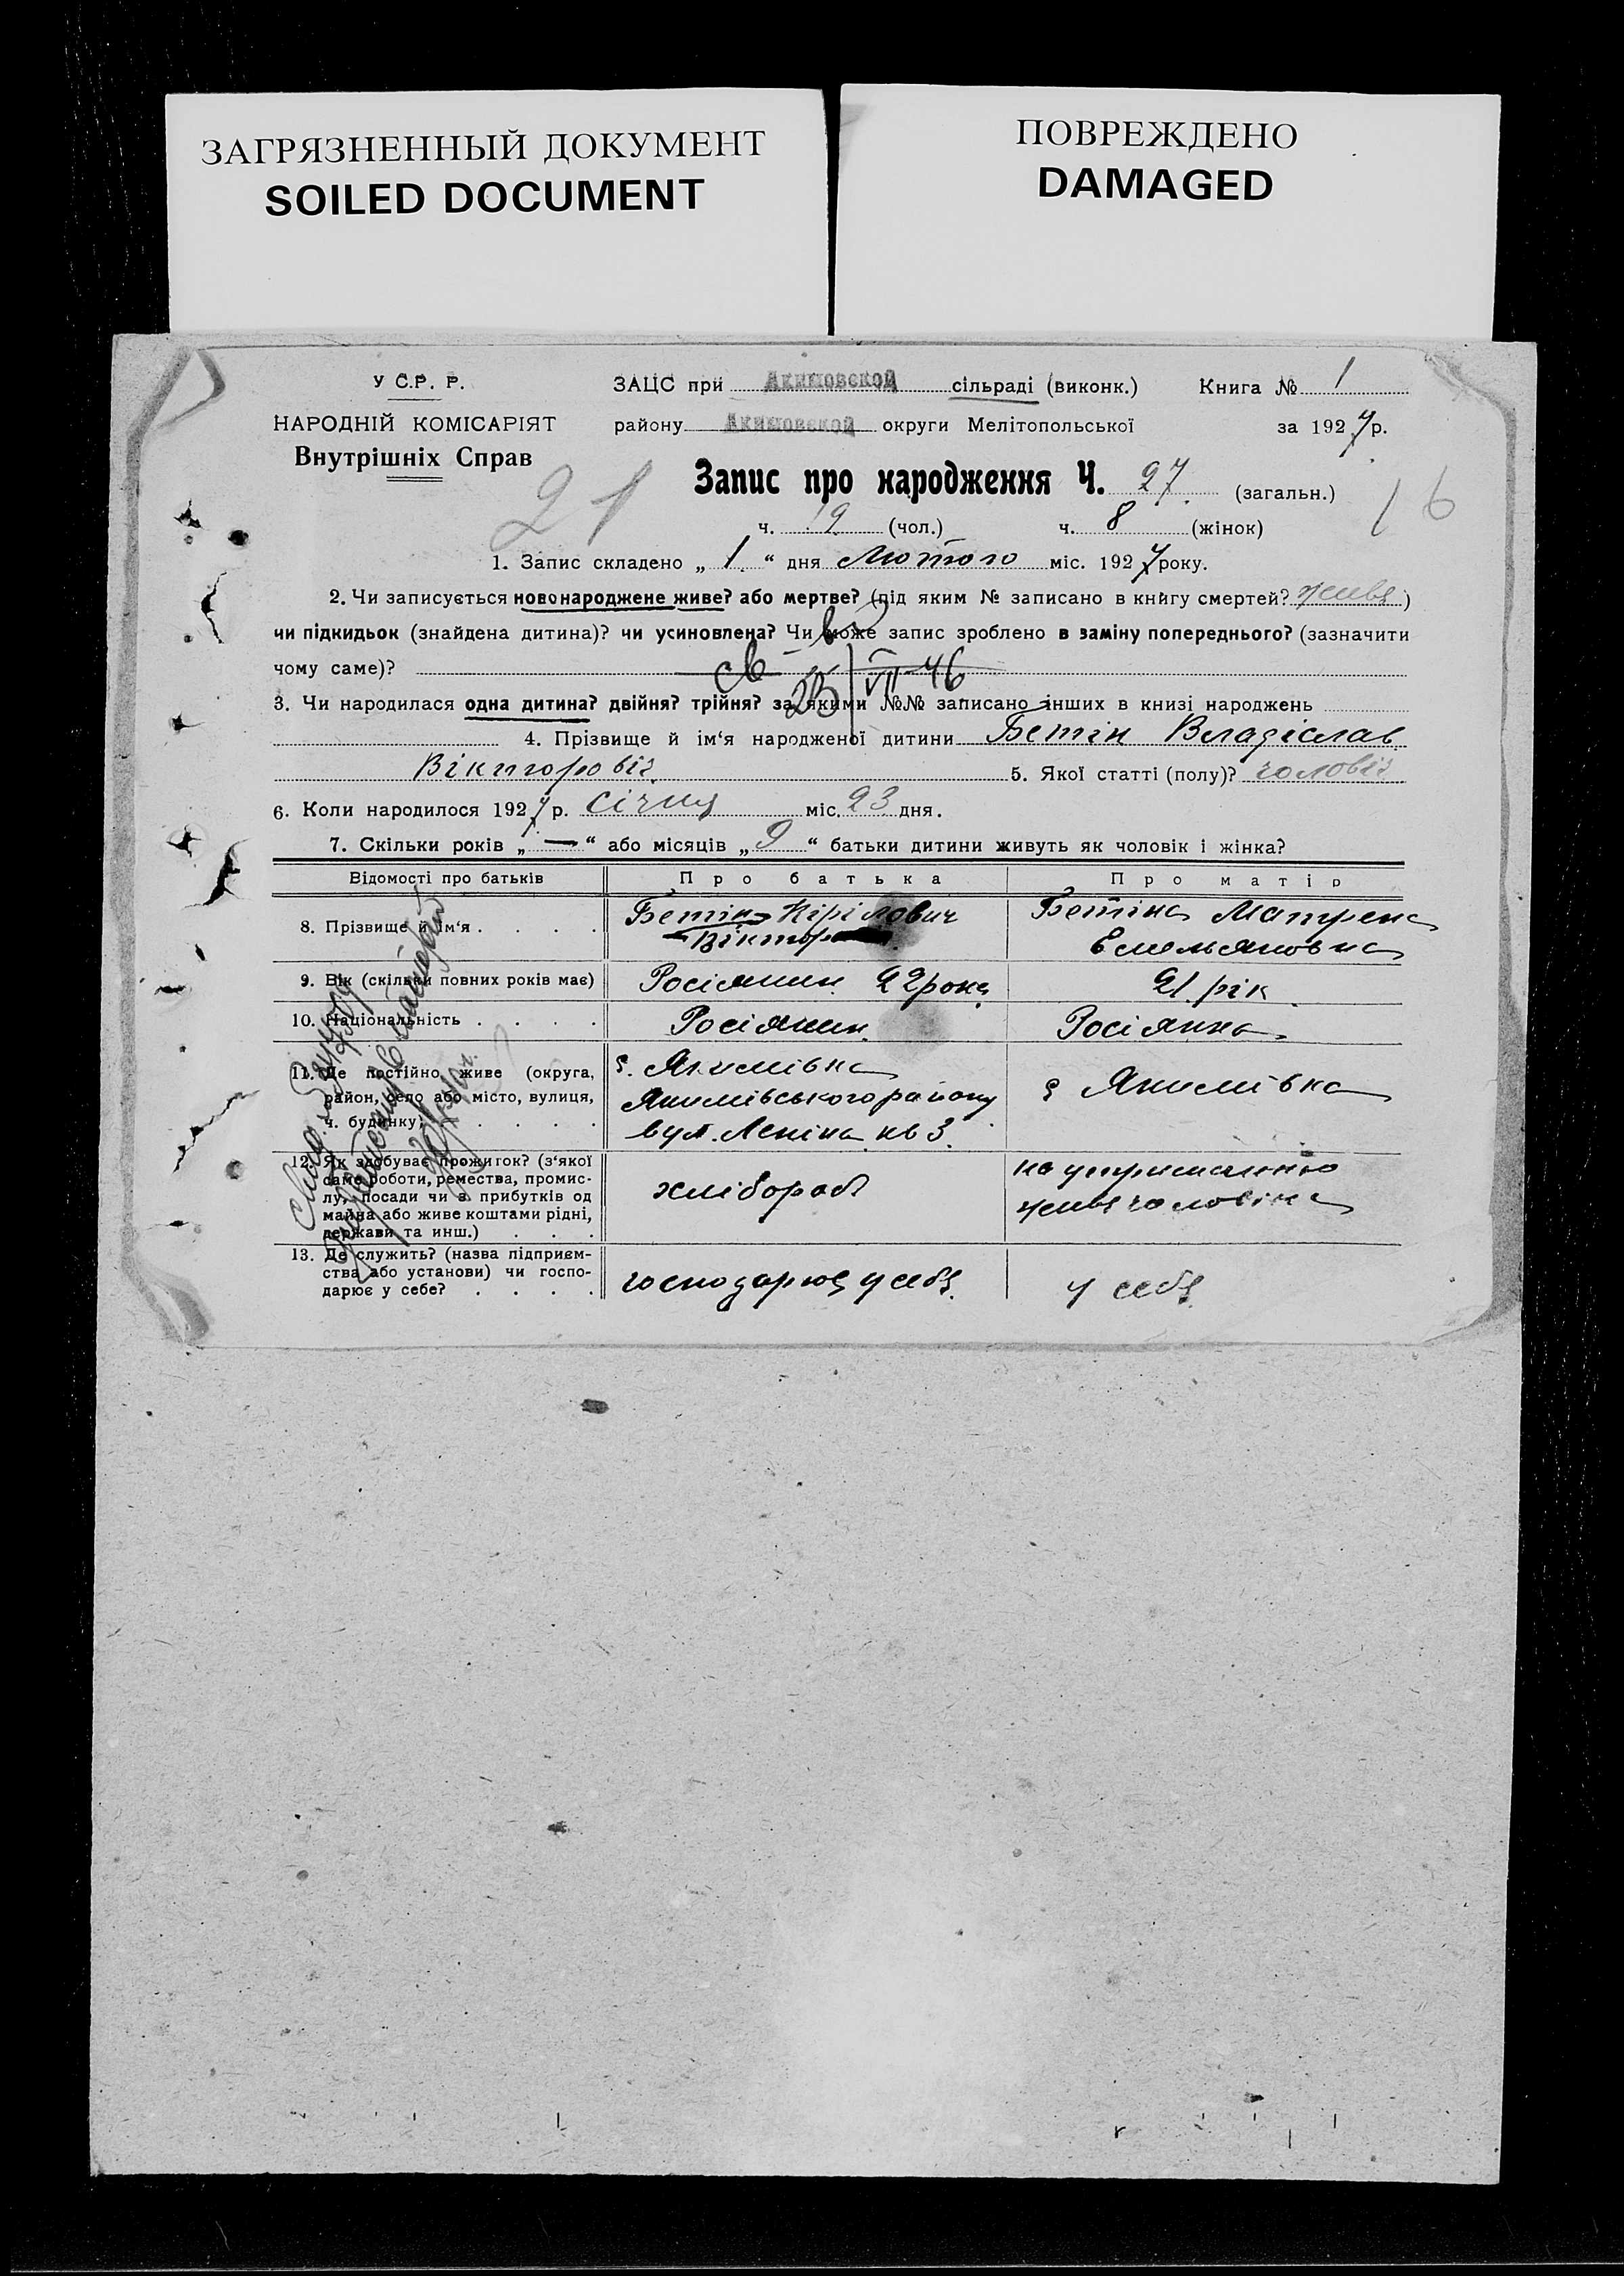 ЗАГРЯЗНЕННЫЙ ДОКУМЕНТ
SOILED DOCUMENT
ПОВРЕЖДЕНО
DAMAGED
У С.Р. Р.
НАРОДНІЙ КОМІСАРІЯТ
Внутрішніх Справ
ЗАЦС при Акимовской сільраді (виконк.) Книга № 1
району Акимовской округи Мелітопольської за 1927 р.
21
Запис про народження Ч. 27 (загальн.)
16
ч. 19 (чол.) ч. 8 (жінок)
1. Запис складено „ 1 “ дня Лютого міс. 1927 року.
2. Чи записується новонароджене живе? або мертве? (під яким № записано в книгу смертей? живе)
чи підкидьок (знайдена дитина)? чи усиновлена? Чи може запис зроблено в заміну попереднього? (зазначити
чому саме)?
св
25/VII-46
3. Чи народилася одна дитина? двійня? трійня? за якими №№ записано інших в книзі народжень
4. Прізвище й ім‘я народженої дитини Бетін Владіслав
Вікторовіч 5. Якої статті (полу)? чоловіч
6. Коли народилося 1927 р. січня міс. 23 дня.
7. Скільки років „ — “ або місяців „ 9 “ батьки дитини живуть як чоловік і жінка?
Відомості про батьків Про батька Про матір
8. Прізвище й ім‘я . . . . Бетін Кірілович Бетіна Матрена
Віктор Емельяновна
9. Вік (скільки повних років має) Росіянин 22 роки 21 рік
10. Національність . . . . Росіянин Росіянка
11. Де постійно живе (округа, с. Якимівка
район, село або місто, вулиця, Якимівського району с Якимівка
ч. будинку) . . . . . вул. Леніна кв 3.
12. Як здобуває прожиток? (з‘якої
саме роботи, ремества, промис-
лу, посади чи з прибутків од хлібороб на утриманню
майна або живе коштами рідні, живе чоловіка
держави та инш.) . . .
13. Де служить? (назва підприєм-
ства або установи) чи госпо- господарює у себе у себе
дарює у себе? . . . .